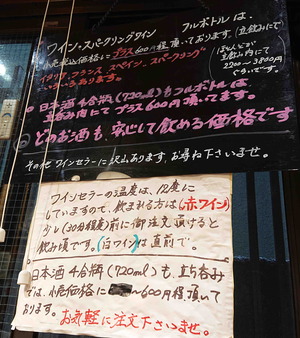 ワイン・スパークリングワイン フルボトルは、
小売税込価格にプラス600円程頂いております。(立飲みにて)
イタリア、フランス、スペイン、スパークリング
といろいろあります。
ほとんどが
立飲み内にて
2200〜3800円
ぐらいです。
○日本酒4合瓶(720ml)もフルボトルは
立呑み内にてプラス600円頂いてます。
どのお酒も安心して飲める価格です
その他ワインセラーに沢山あります。お尋ね下さいませ。
ワインセラーの温度は、12度に
していますので、飲まれる方は(赤ワイン)
少し(30分程度)前に御注文頂けると
飲み頃です。(白ワイン)は直前で。
○日本酒4合瓶(720ml)も、立ち呑み
では、小売価格に 〜600円程頂いて
おります。
お気軽に注文下さいませ。